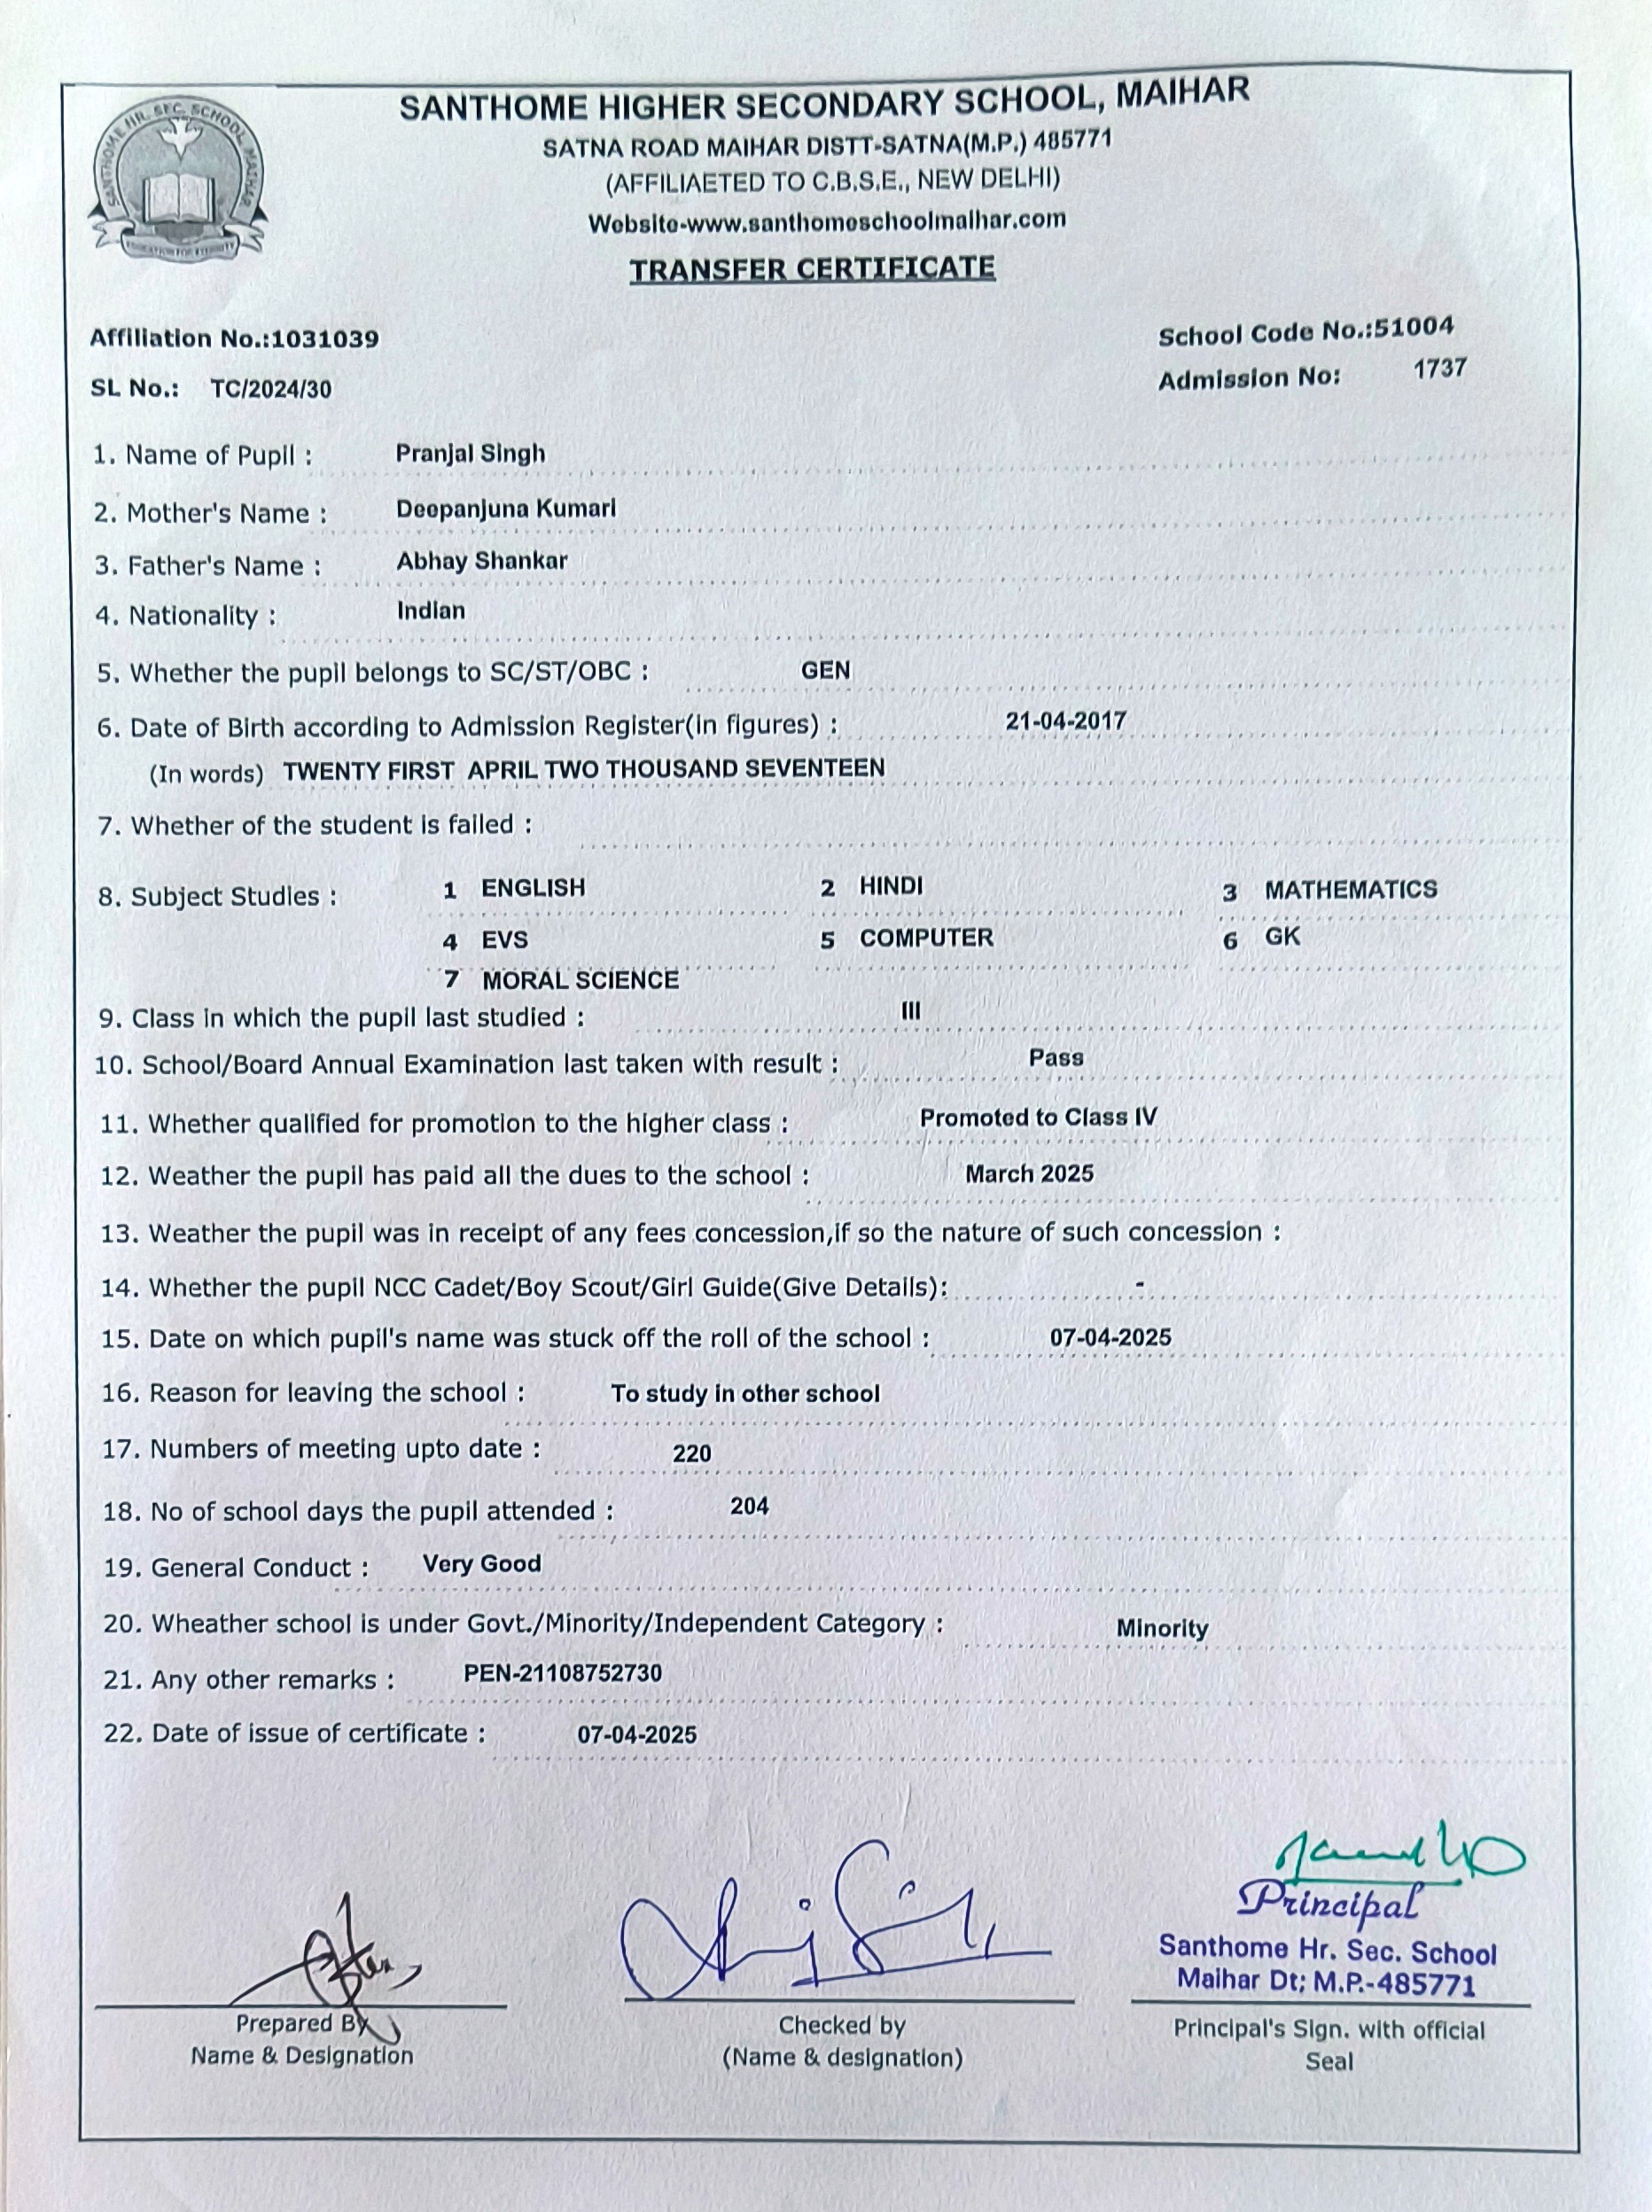 SANTHOME HR. SEC. SCHOOL, MAIHAR
SANTHOME HIGHER SECONDARY SCHOOL, MAIHAR
SATNA ROAD MAIHAR DISTT-SATNA(M.P.) 485771
(AFFILIAETED TO C.B.S.E., NEW DELHI)
Website-www.santhomeschoolmaihar.com
TRANSFER CERTIFICATE
Affiliation No.:1031039 School Code No.:51004
SL No.: TC/2024/30 Admission No: 1737
1. Name of Pupil : Pranjal Singh
2. Mother's Name : Deepanjuna Kumari
3. Father's Name : Abhay Shankar
4. Nationality : Indian
5. Whether the pupil belongs to SC/ST/OBC : GEN
6. Date of Birth according to Admission Register(in figures) : 21-04-2017
(In words) TWENTY FIRST APRIL TWO THOUSAND SEVENTEEN
7. Whether of the student is failed :
8. Subject Studies : 1 ENGLISH 2 HINDI 3 MATHEMATICS
4 EVS 5 COMPUTER 6 GK
7 MORAL SCIENCE
9. Class in which the pupil last studied : III
10. School/Board Annual Examination last taken with result : Pass
11. Whether qualified for promotion to the higher class : Promoted to Class IV
12. Weather the pupil has paid all the dues to the school : March 2025
13. Weather the pupil was in receipt of any fees concession,if so the nature of such concession :
14. Whether the pupil NCC Cadet/Boy Scout/Girl Guide(Give Details): -
15. Date on which pupil's name was stuck off the roll of the school : 07-04-2025
16. Reason for leaving the school : To study in other school
17. Numbers of meeting upto date : 220
18. No of school days the pupil attended : 204
19. General Conduct : Very Good
20. Wheather school is under Govt./Minority/Independent Category : Minority
21. Any other remarks : PEN-21108752730
22. Date of issue of certificate : 07-04-2025
Principal
Santhome Hr. Sec. School
Maihar Dt; M.P.-485771
Prepared By Checked by Principal's Sign. with official
Name & Designation (Name & designation) Seal